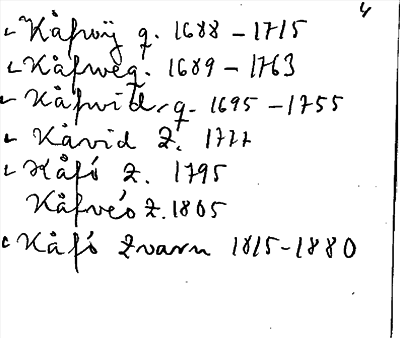 4
Kåfwÿ q. 1688 - 1715
Kåfweq. 1689 - 1763
Kåfwid, q. 1695 - 1755
Kåvid Z. 1777
Kåfö Z. 1795
Kåfvéo Z. 1805
Kåfö Zvarn 1815-1880